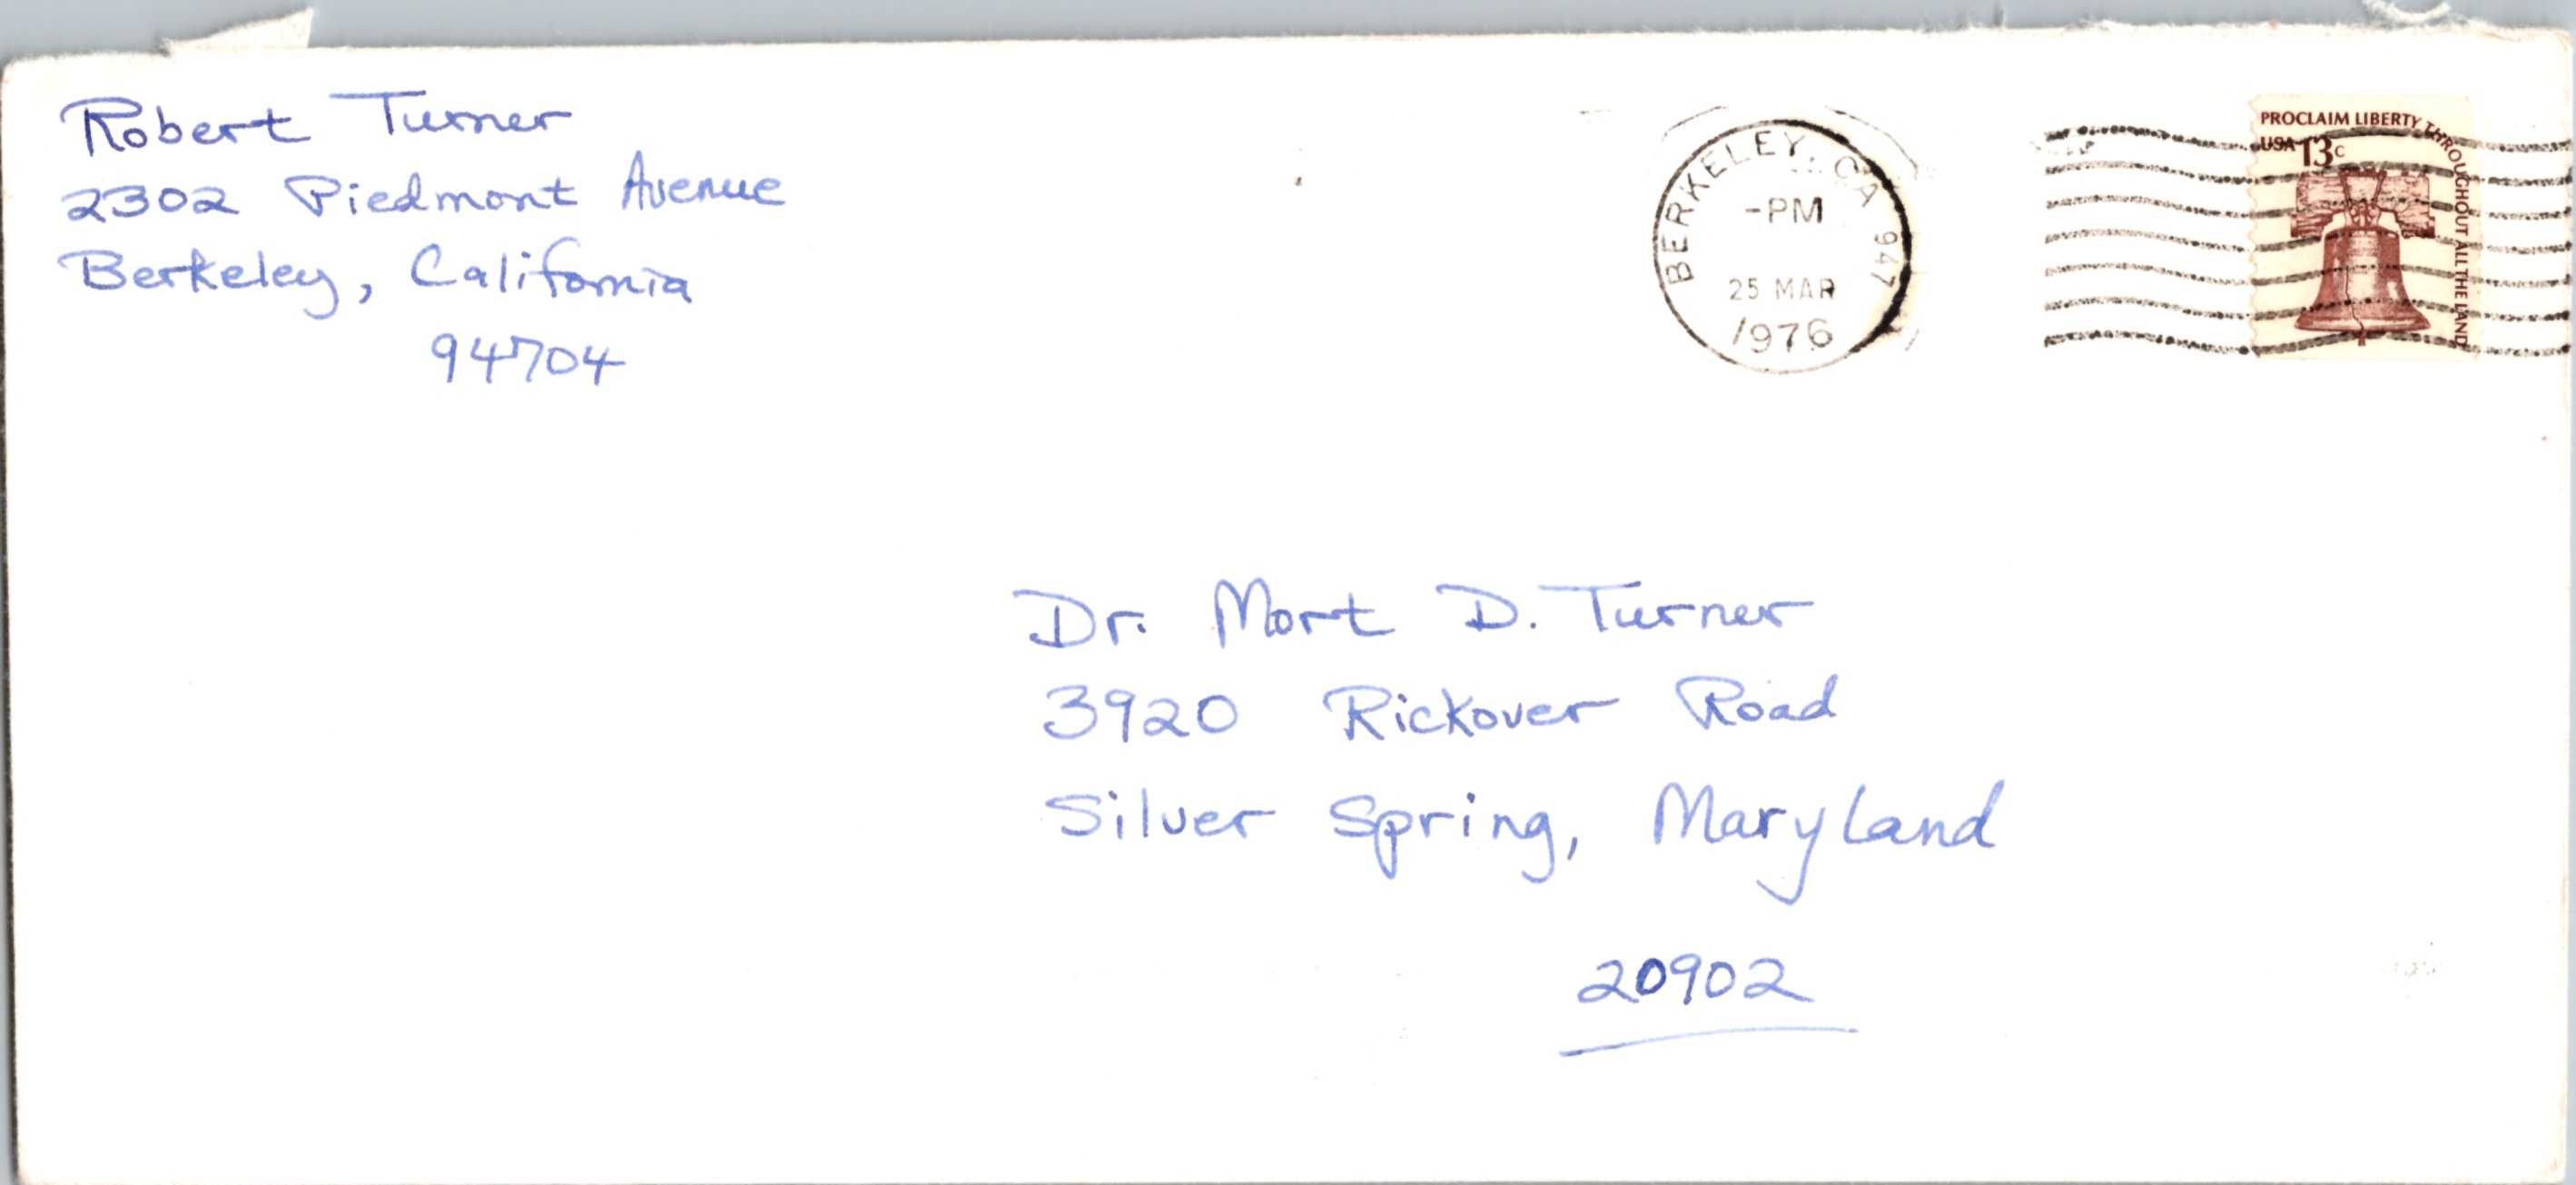 Robert Turner
2302 Piedmont Avenue
Berkeley, California
94704
BERKELEY, CA 947
-PM
25 MAR
1976
PROCLAIM LIBERTY THROUGHOUT ALL THE LAND
USA 13c
Dr. Mort D. Turner
3920 Rickover Road
Silver Spring, Maryland
20902